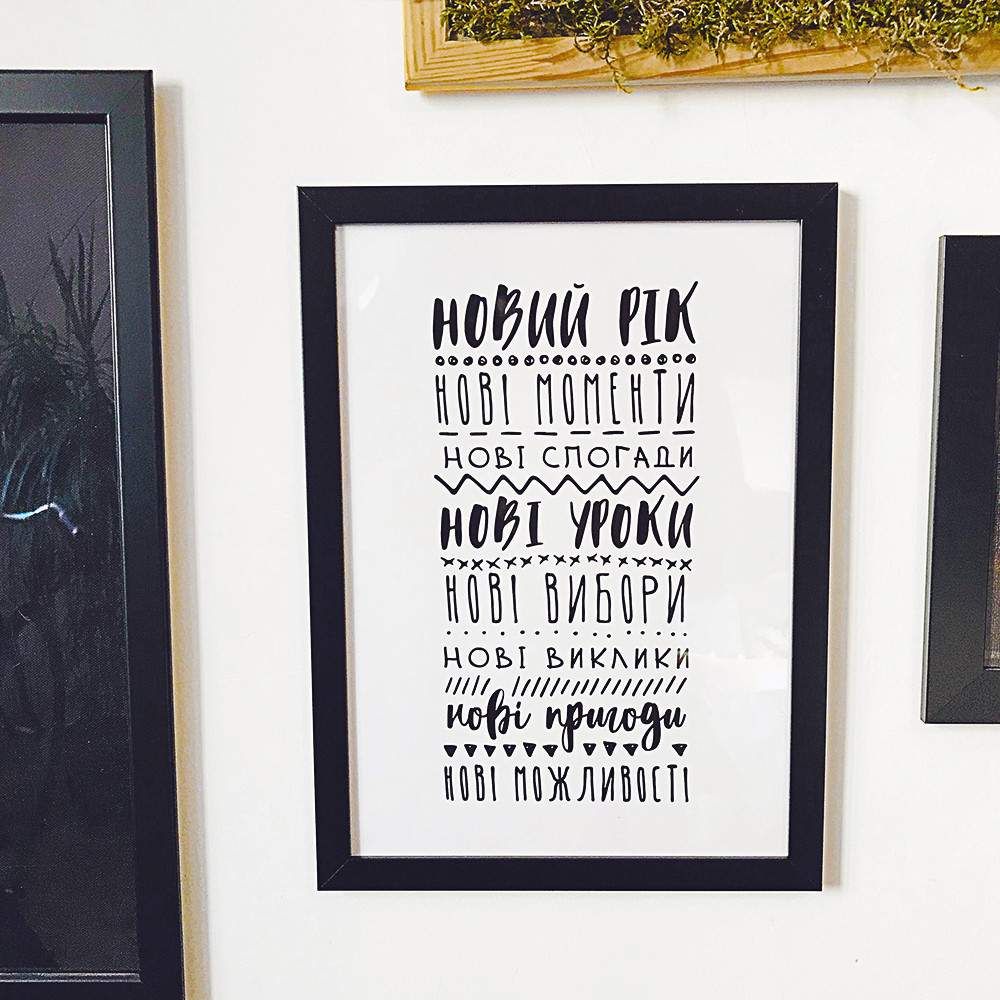 НОВИЙ РІК
НОВІ МОМЕНТИ
НОВІ СПОГАДИ
НОВІ УРОКИ
НОВІ ВИБОРИ
НОВІ ВИКЛИКИ
нові пригоди
НОВІ МОЖЛИВОСТІ